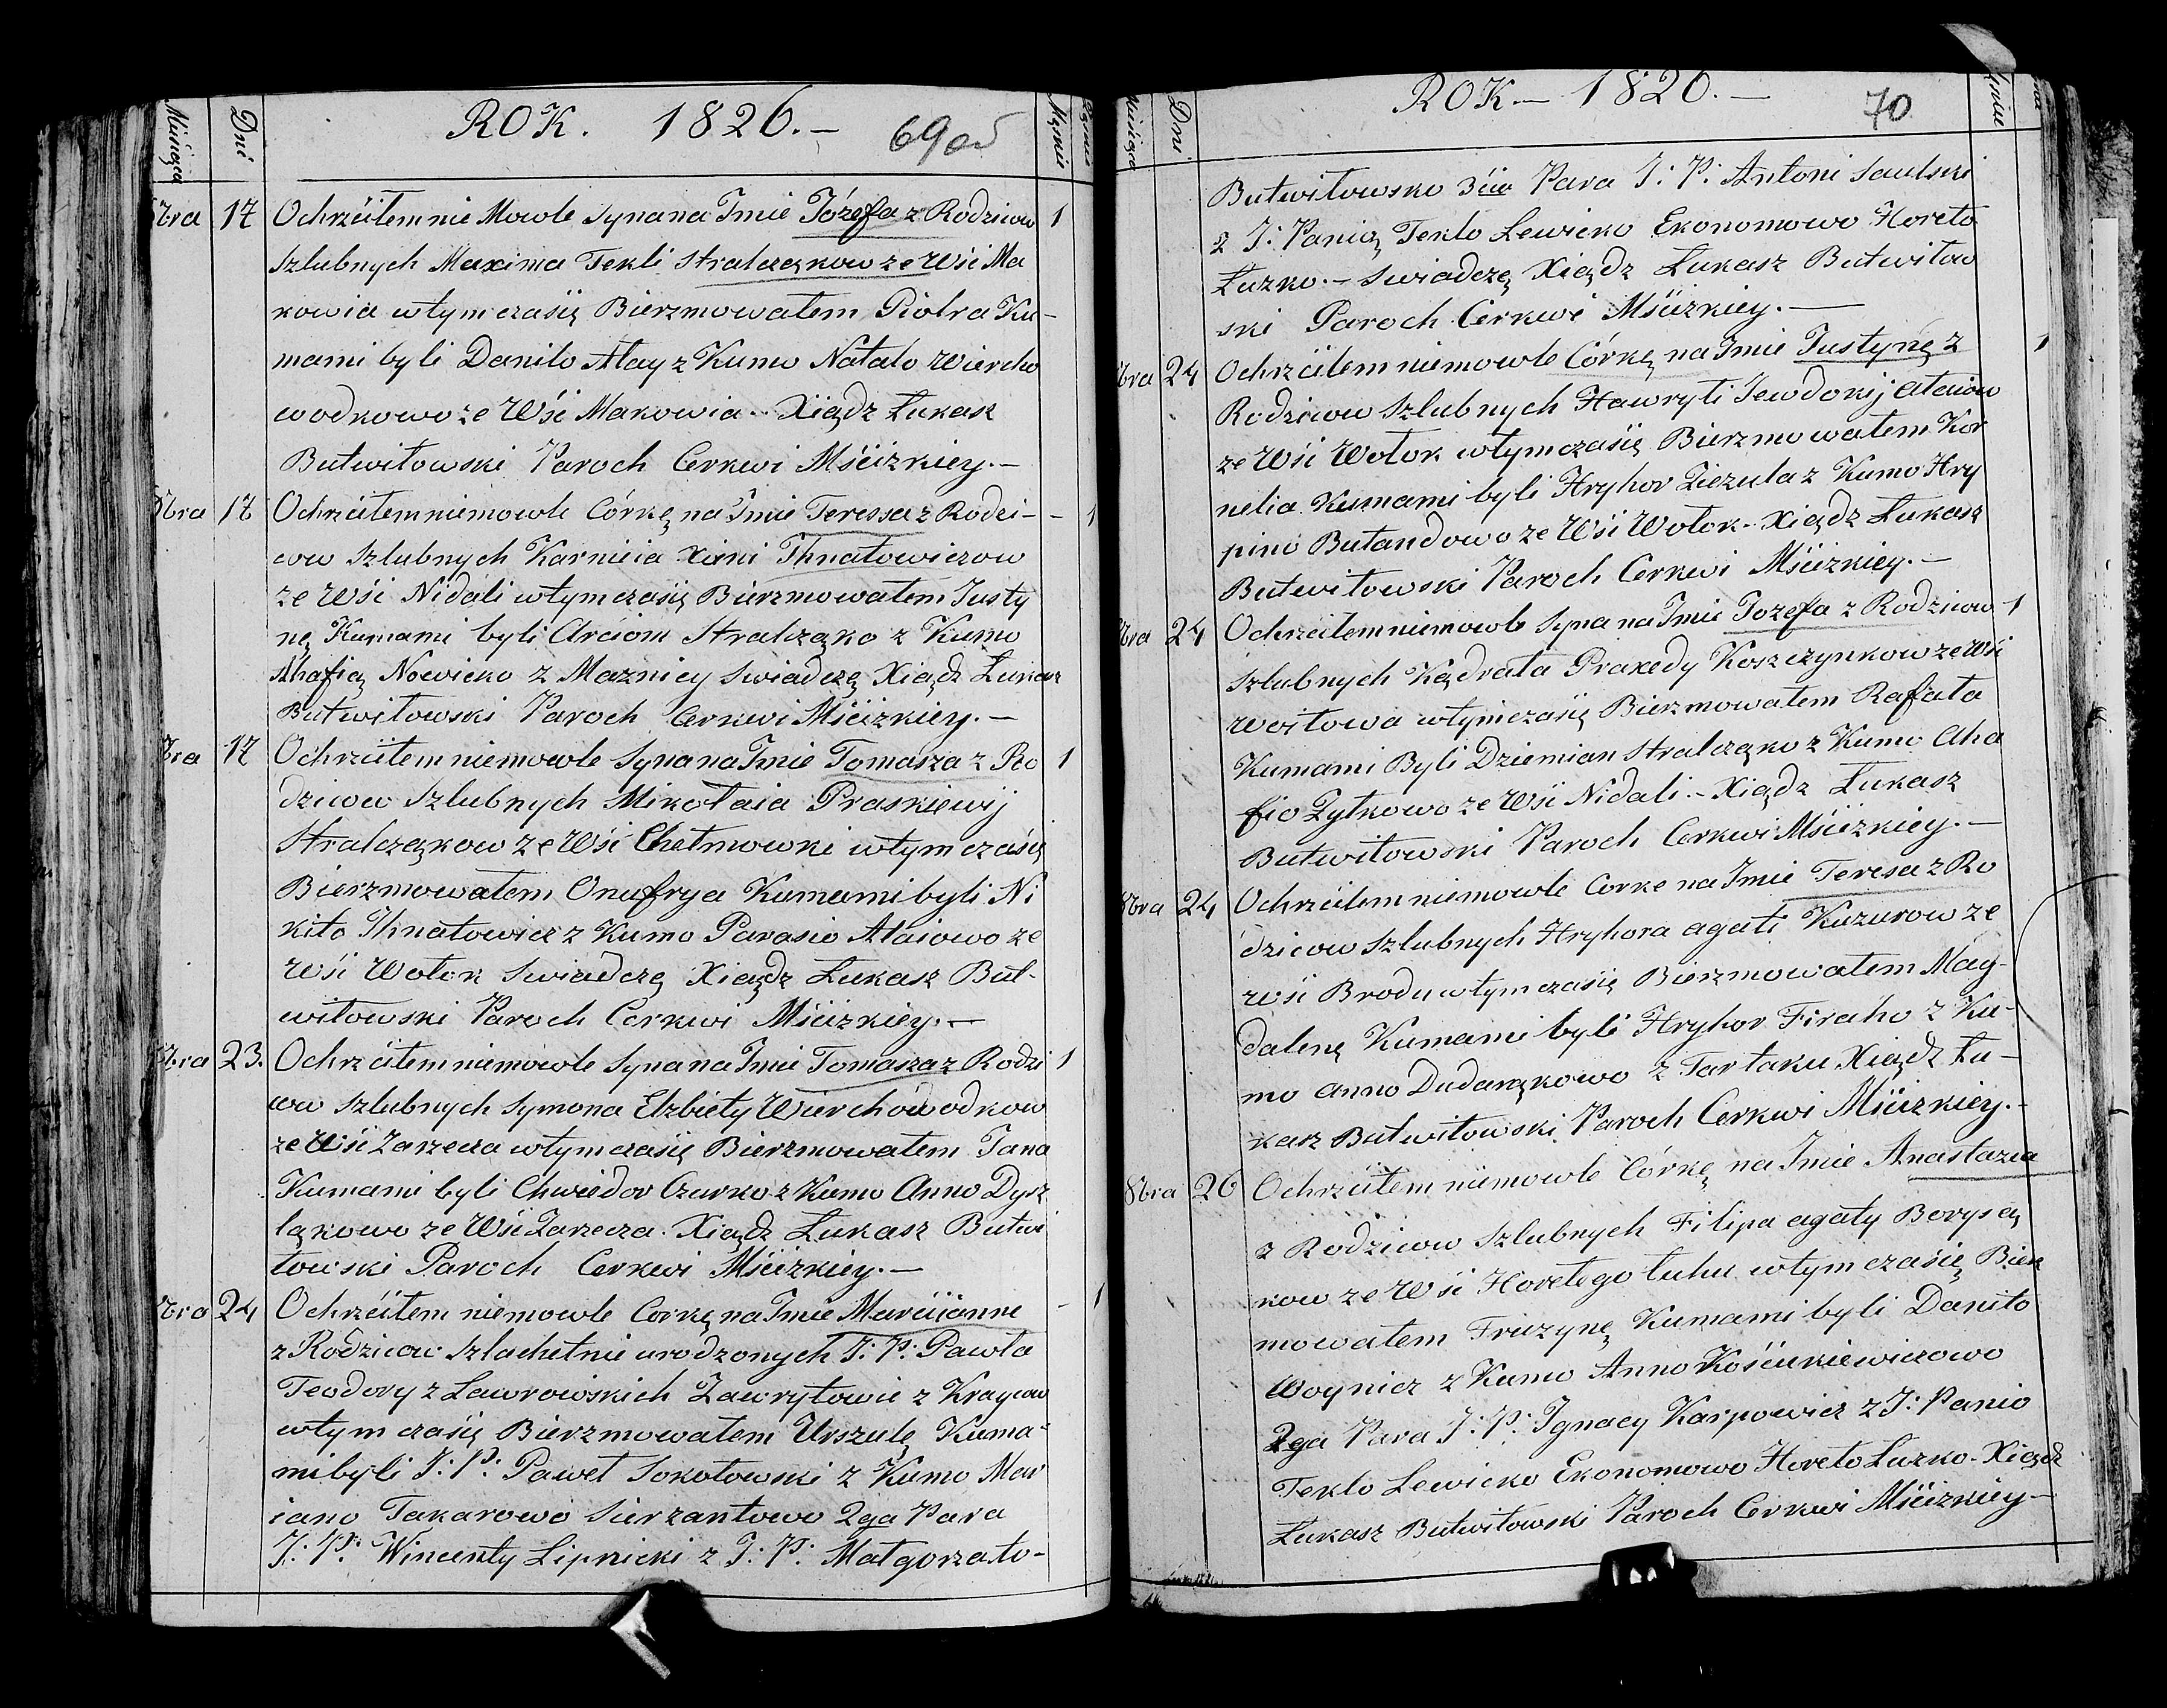 ROK. 1826.–
69
Miesiąca
Dni
Męznie
8bra 17 Ochrzciłem nie Mowle Syna na Imie Józefa z Rodzicow 1
Szlubnych Maxima Tekli Stralcząkow ze Wśi Ma
kowia w tym czasię Bierzmowałem Piotra Ku-
mami byli Daniło Ałay z Kumo Natalo Wiercho
wodkowo ze Wśi Makowia.- Xiądz Łukasz
Butwiłowski Paroch Cerkwi Mśćizkiey.–
8bra 17 Ochrzciłem niemowle Córkę na Imie Teressa z Rodzi- - 1
cow Szlubnych Karnieia Xieni Ihnatowiczow
ze Wśi Nidali w tym czasię Bierzmowałem Justy
nę Kumami byli Arciom Stralcząko z Kumo
Ahafią Nowicko z Maznicy Swiadczę Xiądz Łukasz
Butwiłowski Paroch Cerkwi Mśćizkiey.–
8bra 17 Ochrzciłem niemowle Syna na Imie Tomasza z Ro 1
dzicow Szlubnych Mikołaia Praskiewij
Stralcząkow ze Wśi Chełmowki w tym czasię
Bierzmowałem Onufrya Kumami byli Ni
kito Ihnatowicz z Kumo Parasio Ałaiowo ze
Wśi Wołok Swiadczę Xiądz Łukasz But-
wiłowski Paroch Cerkwi Mśćizkiey.–
8bra 23. Ochrzciłem niemowle Syna na Imie Tomasza z Rodzi 1
cow Szlubnych Symona Elzbiety Wierchowodkow
ze Wśi Zarzecza w tym czasię Bierzmowałem Jana
Kumami byli Chwiedor Czurko z Kumo Anno Dysz
ląkowo ze Wśi Zarzecza. Xiądz Łukasz Butwi
łowski Paroch Cerkwi Mśćizkiey.–
8bra 24 Ochrzciłem niemowle Corkę na Imie Marciianne - 1
z Rodzicow Szlachetnie urodzonych J: P: Pawła
Teodory z Ławrowskich Zawryłowie z Kraycow
w tym czasię Bierzmowałem Urszulę Kuma-
mi byli J: P: Paweł Sokołowski z Kumo Mar
iano Takarowo Sierzantowo 2ga Para
J: P: Wincenty Lipnicki z J: P: Małgorzato-
ROK.– 1826.–
70
Miesiąca
Dni
Butwiłowsko 3cia Para J: P: Antoni Saulski
z J: Panią Teklo Lewicko Ekonomowo Horeło
Łuzko.- Swiadczę Xiądz Łukasz Butwiłow
ski Paroch Cerkwi Mśćizkiey.–
8bra 24 Ochrzciłem niemowle Córkę na Imie Justynę z 1
Rodzicow Szlubnych Hawryły Jewdokij Ałaiow
ze Wśi Wołok w tym czasię Bierzmowałem Kor
nelia Kumami byli Hryhor Ziezula z Kumo Hry
pino Butandowo ze Wśi Wołok.- Xiądz Łukasz
Butwiłowski Paroch Cerkwi Mśćizkiey.–
8bra 24 Ochrzciłem niemowle Syna na Imie Jozefa z Rodzicow 1
Szlubnych Kądrata Praxedy Koszczynkow ze Wśi
Woiłowa w tym czasię Bierzmowałem Rafała
Kumami Byli Dziemian Stralcząko z Kumo Aha
fio Zytkowo ze Wśi Nidali.- Xiądz Łukasz
Butwiłowski Paroch Cerkwi Mśćizkiey.–
8bra 24 Ochrzciłem niemowle Corke na Imie Teresa z Ro
dzicow Szlubnych Hryhora agati Kuzurow ze
wśi Brodu w tym czasię Bierzmowałem Mag-
dalenę Kumami byli Hryhor Firaho z Ku-
mo anno Dudarąkowo z Tartaku Xiądz Łu-
kasz Butwiłowski Paroch Cerkwi Mśćizkiey.-
8bra 26 Ochrzciłem niemowle Córkę na Imie Anastazia
z Rodzicow Szlubnych Filipa agaty Borysą
kow ze Wśi Horełego łuhu w tym czasię Bierz
mowałem Fruzynę Kumami byli Daniło
Woynicz z Kumo Anno Kośćiukiewiczowo
2ga Para J: P: Ignacy Karpowicz z J: Panio
Teklo Lewicko Ekonomowo Horeło Łuzko- Xiądz
Łukasz Butwiłowski Paroch Cerkwi Mśćizkiey–